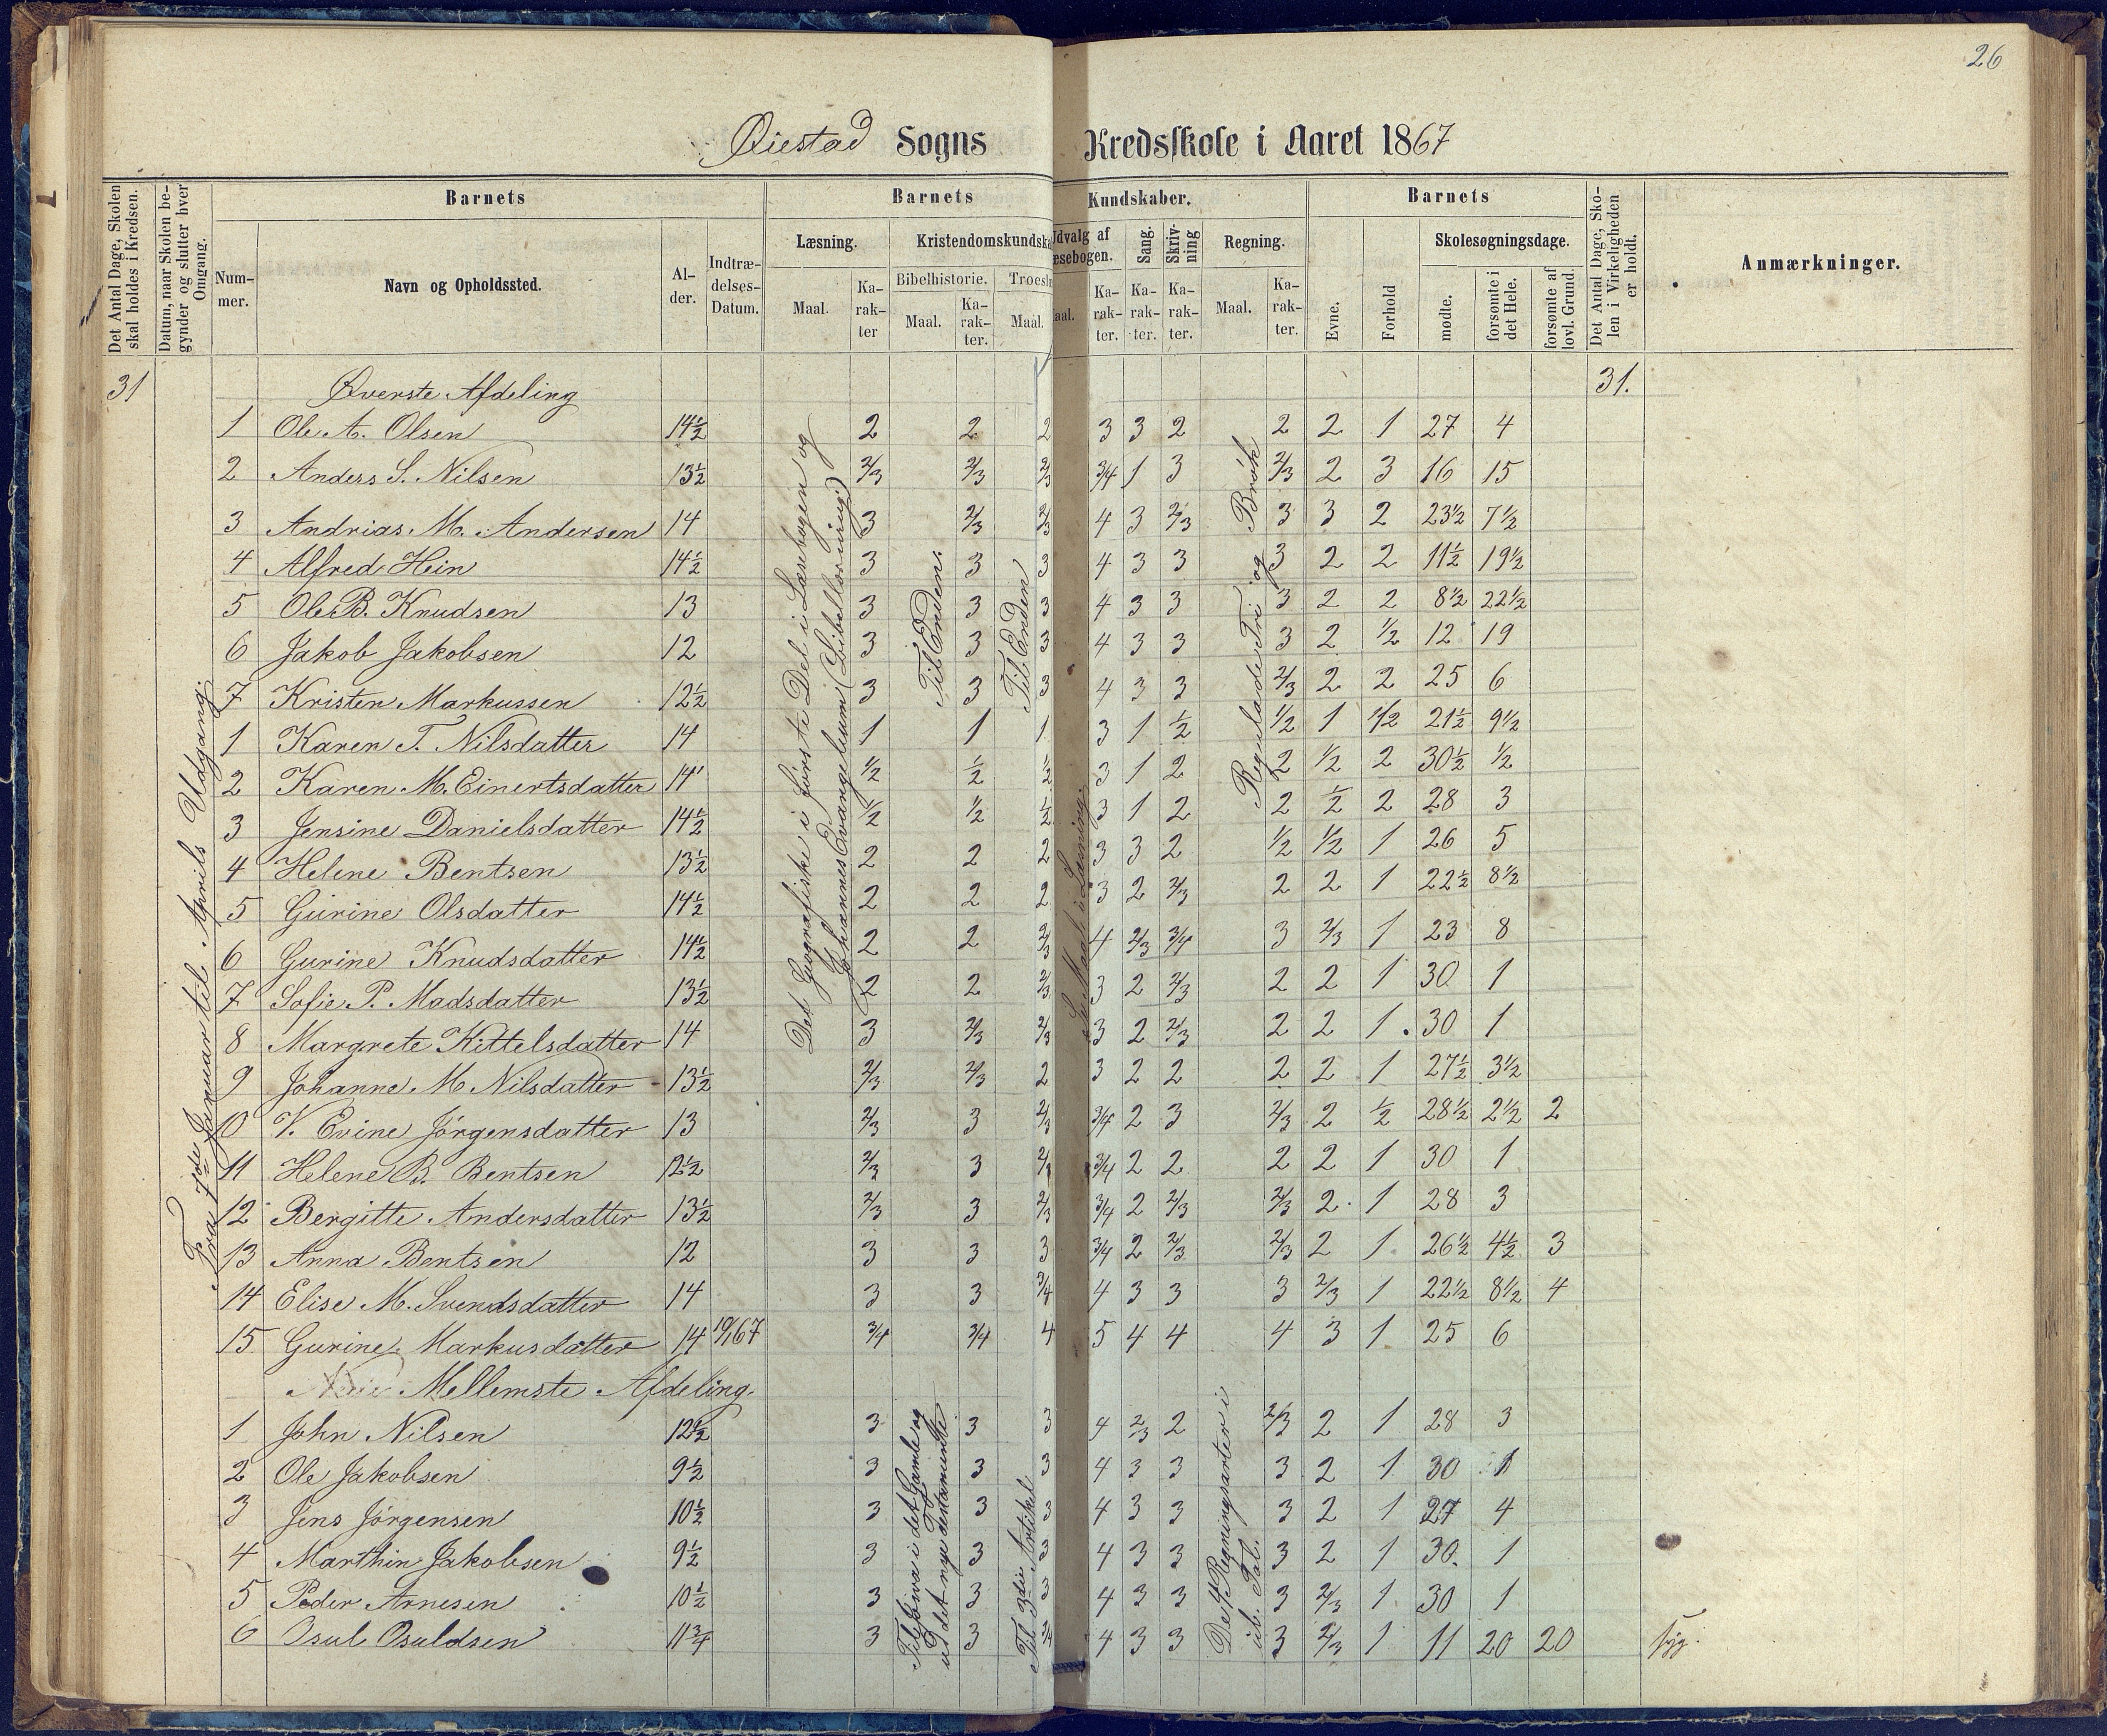 26
Øiestad Sogns Kredsskole i Aaret 1867
Det Antal Dage, Skolen skal holdes i Kredsen.
Datum, naar Skolen begynder og slutter hver Omgang.
Barnets
Nummer.
Navn og Opholdssted.
Alder.
Indtrædelses-Datum.
Barnets Kundskaber.
Læsning.
Maal.
Karakter
Kristendomskundska
Bibelhistorie.
Maal.
Karakter.
Troesl
Maal.
Udvalg af
æsebogen.
aal.
Karakter.
Sang.
Karakter.
Skrivning
Karakter.
Regning.
Maal.
Karakter.
Barnets
Evne.
Forhold
Skolesøgningsdage.
mødte.
forsømte i det Hele.
forsømte af lovl. Grund.
Det Antal Dage, Skolen i Virkeligheden er holdt.
Anmærkninger.
31 Øverste Afdeling 31.
Fra 7de Januar til Aprils Udgang.
Det Geografiske i første Del i Læsebogen og
Johannes Evangelium
Til Enden
Til Enden
Se Maal i Læsning.
Reguladetri og Brøk
1 Ole A. Olsen 14½ 2 2 2 3 3 2 2 2 1 27 4
2 Anders S. Nilsen 13½ 2/3 2/3 2/3 3/4 1 3 2/3 2 3 16 15
3 Andrias M. Andersen 14 3 2/3 2/3 4 3 2/3 3 3 2 23½ 7½
4 Alfred Hein 14½ 3 3 3 4 3 3 3 2 2 11½ 19½
5 Ole B. Knudsen 13 3 3 3 4 3 3 3 2 2 8½ 22½
6 Jakob Jakobsen 12 3 3 3 4 3 3 3 2 1/2 12 19
7 Kristen Markussen 12½ 3 3 3 4 3 3 2/3 2 2 25 6
1 Karen T. Nilsdatter 14 1 1 1 3 1 1/2 1/2 1 1/2 21½ 9½
2 Karen M. Einertsdatter 14 1/2 1/2 1/2 3 1 2 2 1/2 2 30½ ½
3 Jensine Danielsdatter 14½ 1/2 1/2 1/2 3 1 2 2 1/2 2 28 3
4 Helene Bentsen 13½ 2 2 2 3 3 2 1/2 1/2 1 26 5
5 Gurine Olsdatter 14½ 2 2 2 3 2 2/3 2 2 1 22½ 8½
6 Gurine Knudsdatter 14½ 2 2 2/3 4 2/3 3/4 3 2/3 1 23 8
7 Sofie P. Madsdatter 13½ 2 2 2/3 3 2 2/3 2 2 1 30 1
8 Margrete Kittelsdatter 14 3 2/3 2/3 3 2 2/3 2 2 1 30 1
9 Johanne M Nilsdatter 13½ 2/3 2/3 2 3 2 2 2 2 1 27½ 3½
10 V. Evine Jørgensdatter 13 2/3 3 2/3 3/4 2 3 2/3 2 1/2 28½ 2½ 2
11 Helene B. Bentsen 12½ 2/3 3 2/3 3/4 2 2 2 2 1 30 1
12 Bergitte Andersdatter 13½ 2/3 3 2/3 3/4 2 2/3 2/3 2 1 28 3
13 Anna Bentsen 12 3 3 3 3/4 2 2/3 2/3 2 1 26½ 4½ 3
14 Elise M. Svendsdatter 14 3 3 3/4 4 3 3 3 2/3 1 22½ 8½ 4
15 Gurine Markusdatter 14 10/1 67 3/4 3/4 4 5 4 4 4 3 1 25 6
Mellemste Afdeling.
Til Jova i det Gamle og
ud det nye Testamente
Til 3die Artikel
De 4 Regningsarter i
ub. Tal.
1 John Nilsen 12½ 3 3 3 4 2/3 2 2/3 2 1 28 3
2 Ole Jakobsen 9½ 3 3 3 4 3 3 3 2 1 30 1
3 Jens Jørgensen 10½ 3 3 3 4 3 3 3 2 1 27 4
4 Marthin Jakobsen 9½ 3 3 3 4 3 3 3 2 1 30. 1
5 Peder Arnesen 10½ 3 3 3 4 3 3 3 2/3 1 30 1
6 Osul Osuldsen 11¾ 3 3 3/4 4 3 3 3 2/3 1 11 20 20 syg.